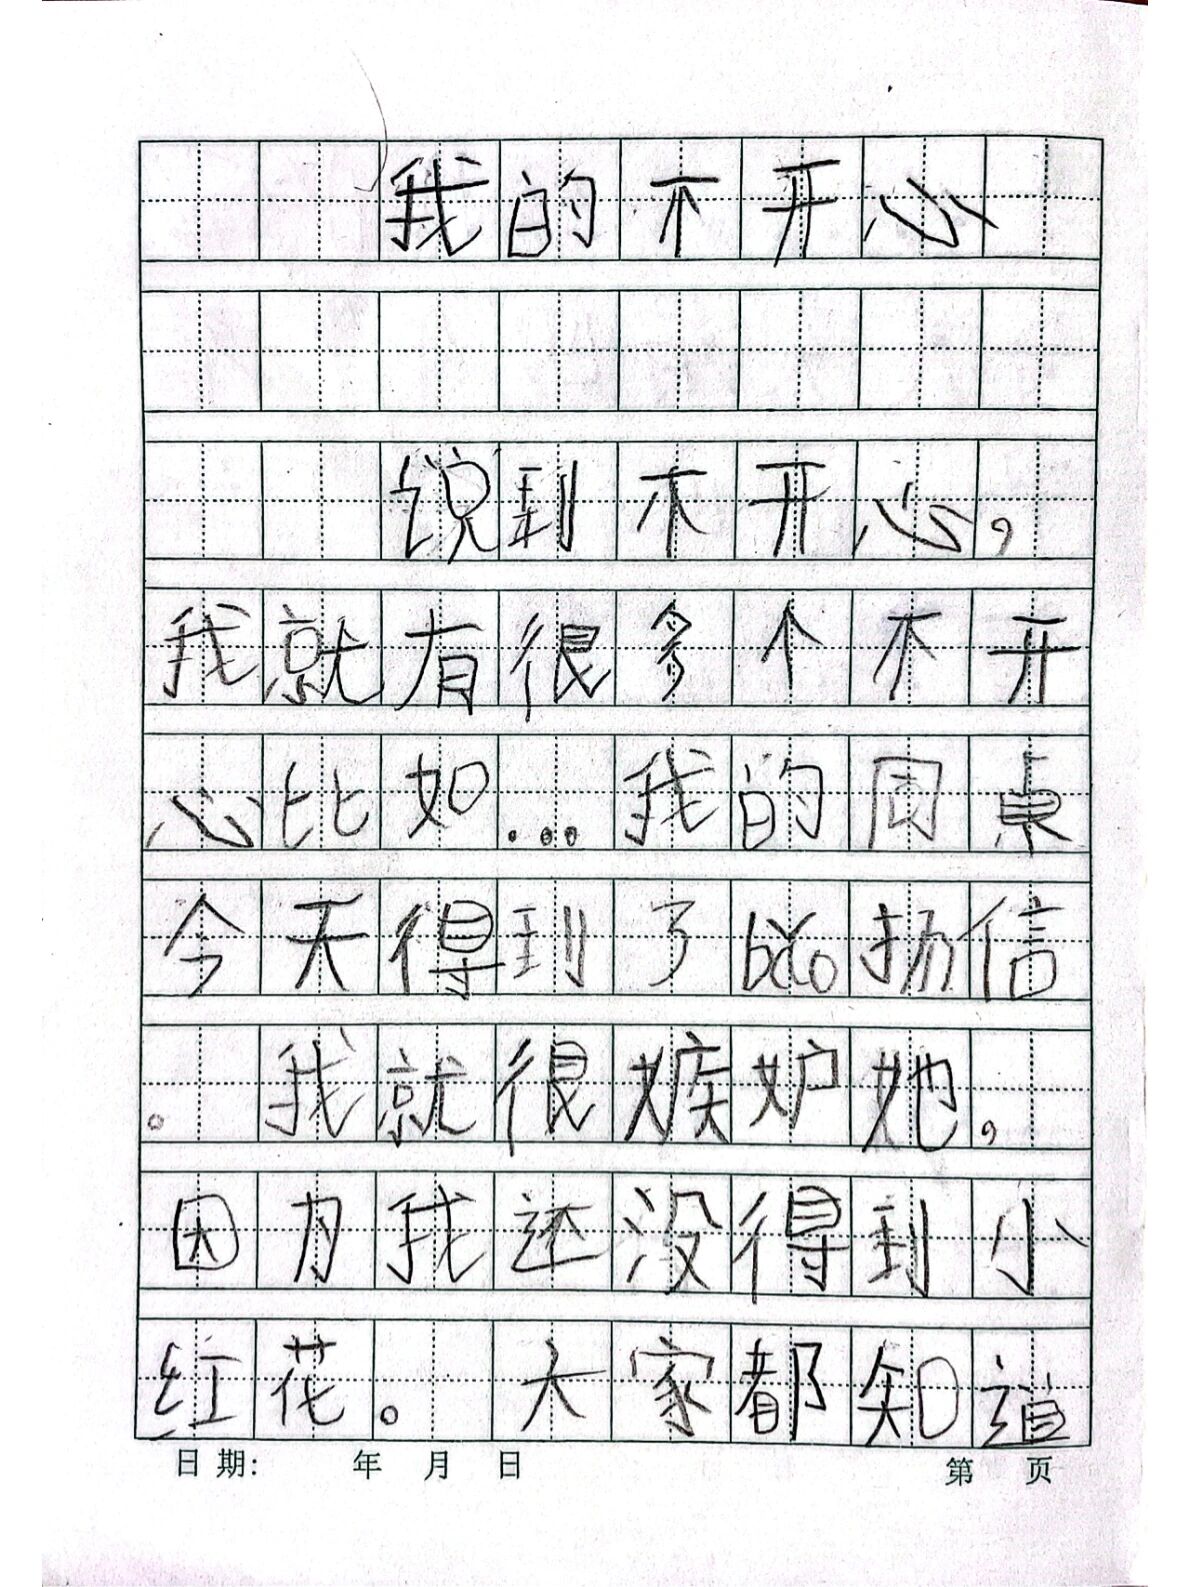 我的不开心
说到不开心，
我就有很多个不开
心比如...我的同桌
今天得到了biǎo扬信
。我就很嫉妒她，
因为我还没得到小
红花。大家都知道
日期: 年 月 日 第 页